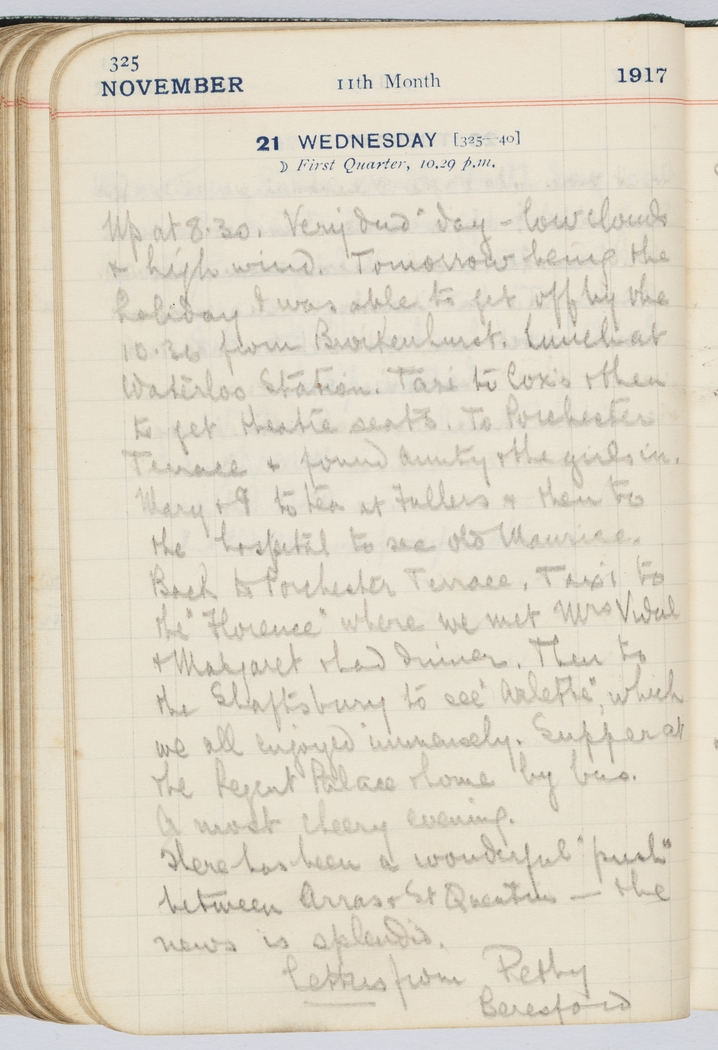 325
NOVEMBER 11th Month 1917
21 WEDNESDAY [325—40]
☽ First Quarter, 10.29 p.m.
Up at 8.30. Very "dud" day – low clouds
& high wind. Tomorrow being the
holiday I was able to get off by the
10.36 from Brockenhurst. Lunch at
Waterloo Station. Taxi to Cox's & then
to get theatre seats. To Porchester
Terrace & found Aunty & the girls in.
Mary & I to tea at Fullers & then to
the hospital to see old Maurice.
Back to Porchester Terrace. Taxi to
the "Florence" where we met Mrs Vidal
& Margaret & had dinner. Then to
the Shaftsbury to see "Arlette", which
we all enjoyed immensely. Supper at
the Regent Palace & home by bus.
A most cheery evening.
There has been a wonderful "push"
between Arras & St Quentin — the
news is splendid.
Letters from
Beresford